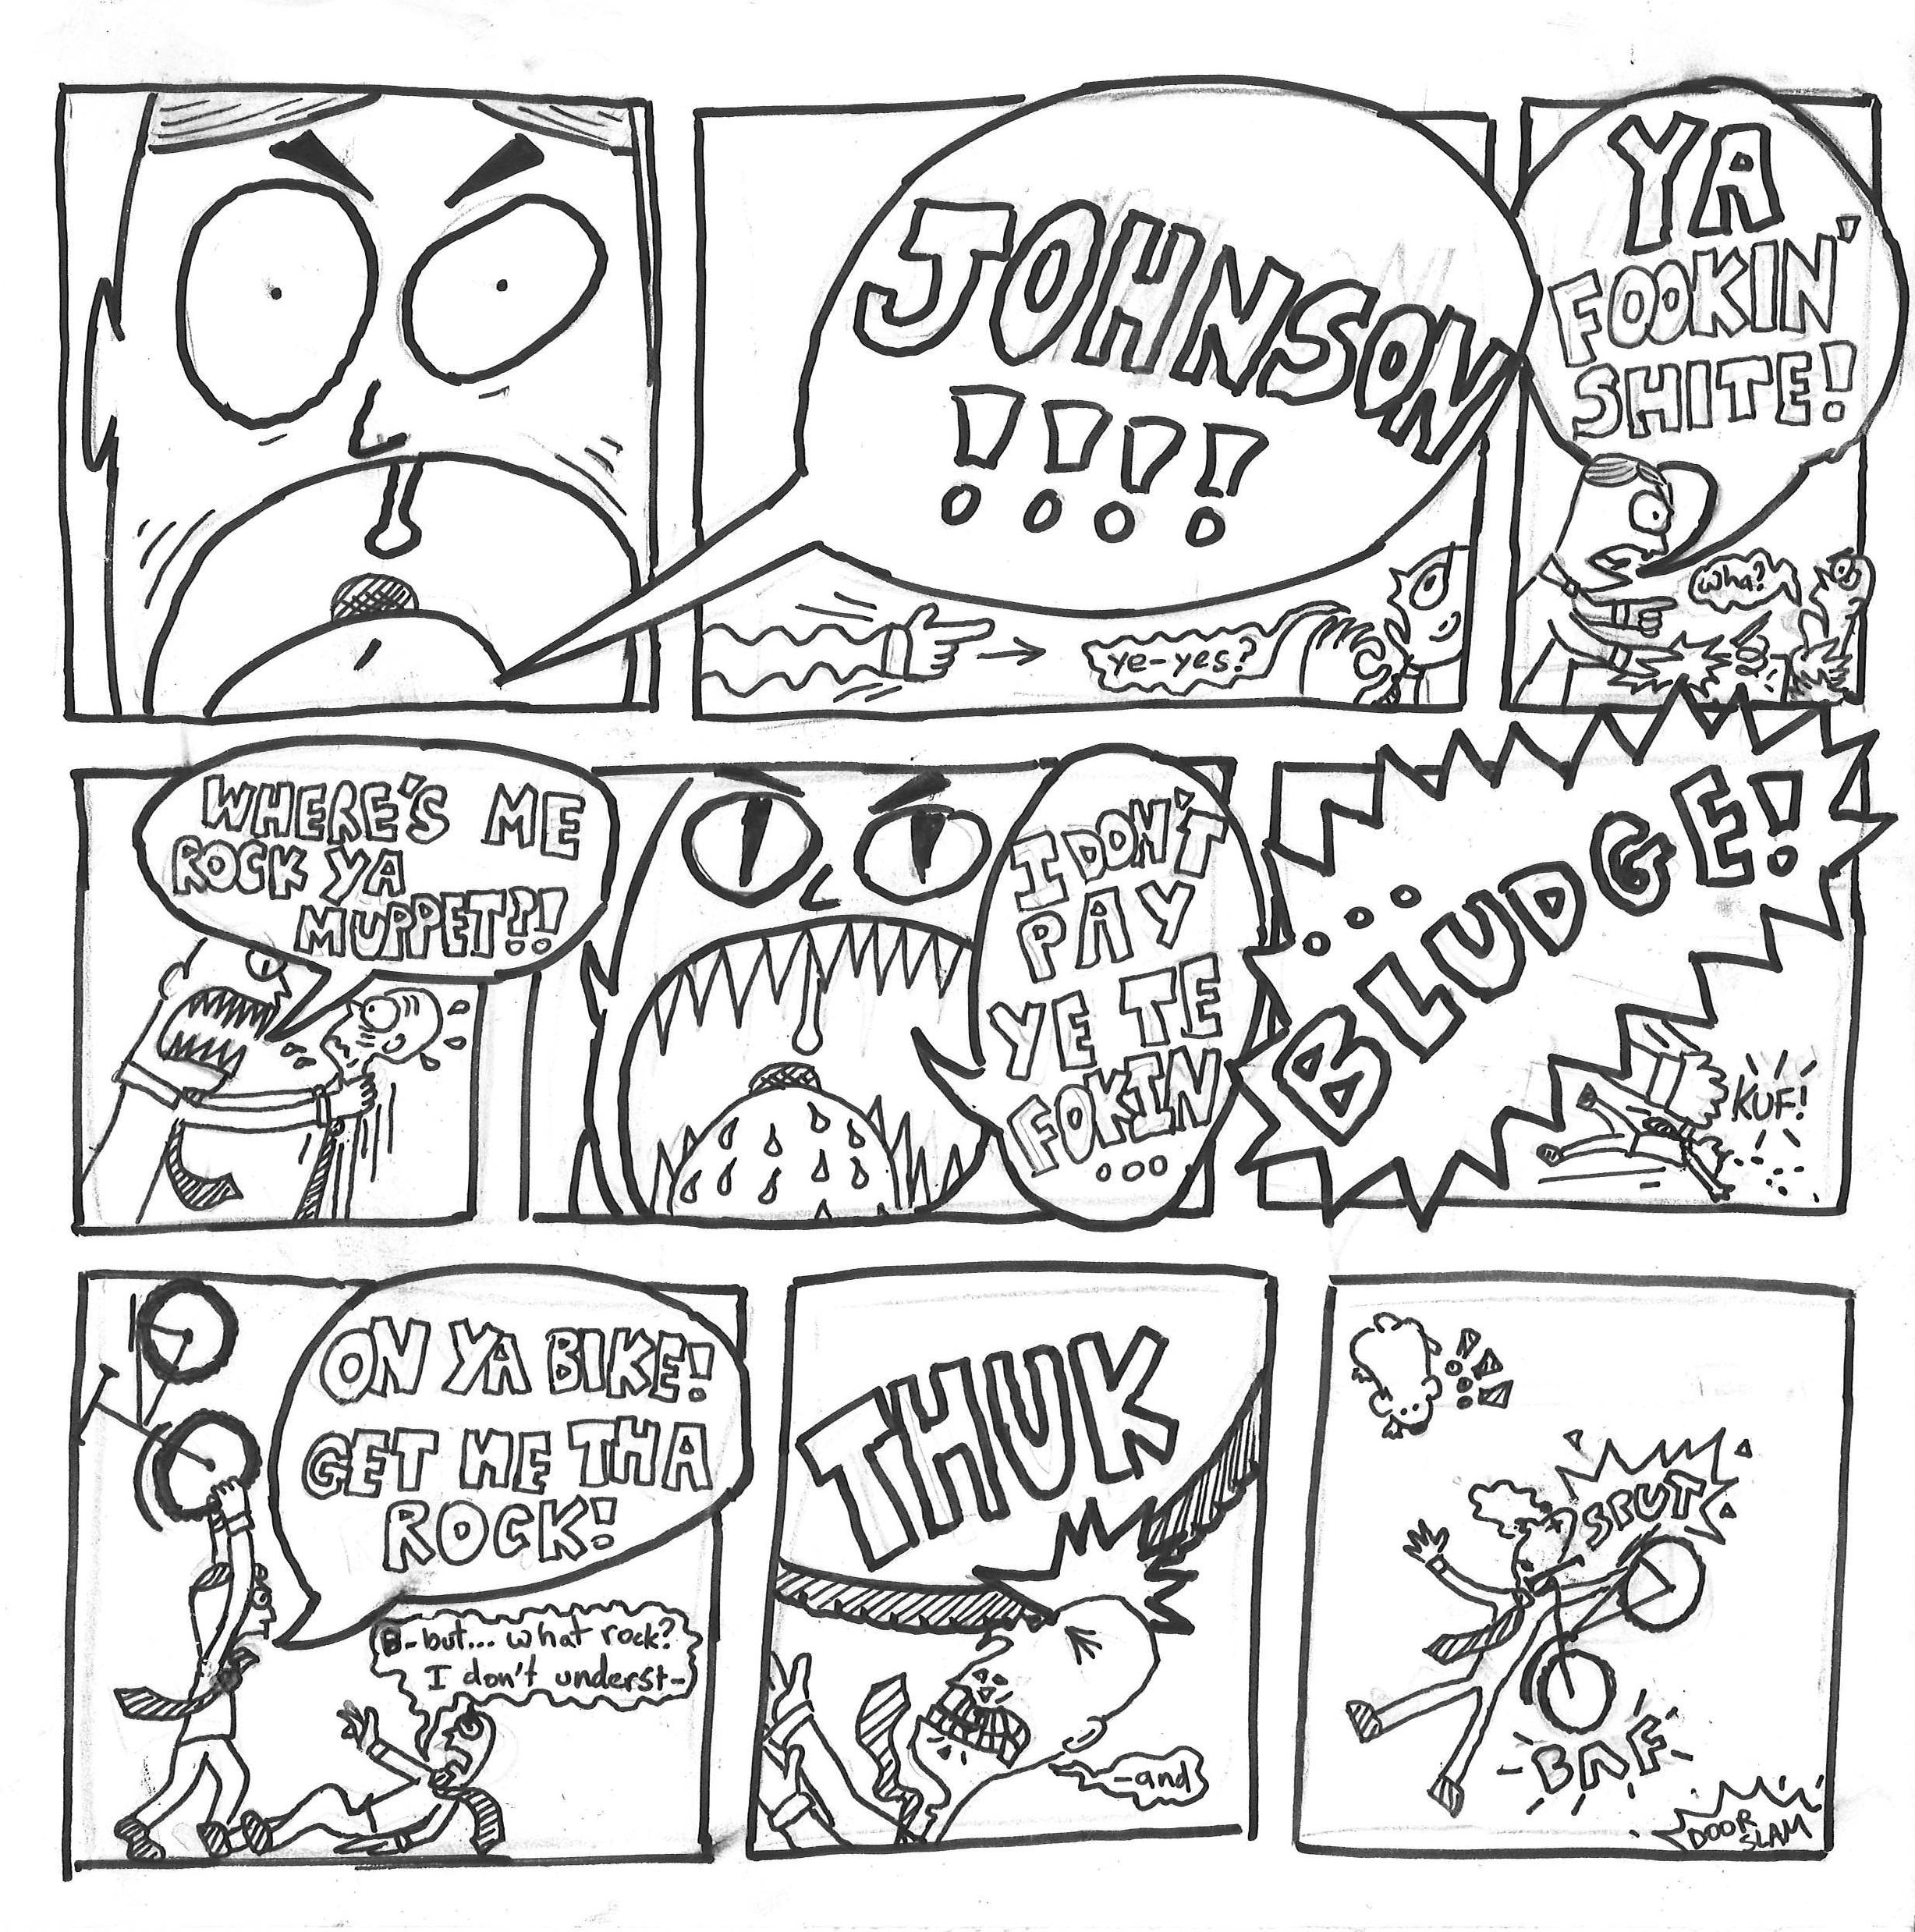 JOHNSON
!!!!
ye-yes?
YA
FOOKIN'
SHITE!
wha?
WHERE'S ME
ROCK YA
MUPPET?!
I DON'T
PAY
YE TE
FOKIN
...
...BLUDGE!
KUF!
ON YA BIKE!
GET ME THA
ROCK!
B-but... what rock?
I don't underst-
THUK
-and
SPUT
BAF
DOOR
SLAM